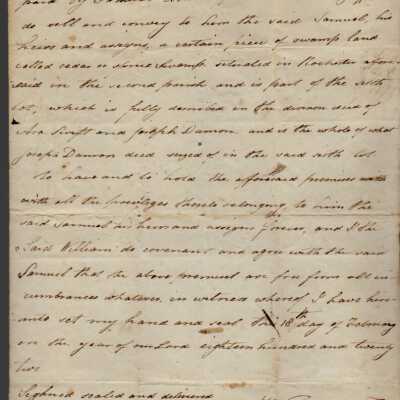 paid by Samuel
do sell and convey to him the said Samuel, his
heirs and assigns, a certain, piece of swamp land
called cedar or Swamp situated in Rochester afore
said in the second parish and is part of the sixth
lot, which is fully described in the division deed of
Asa Swift and Joseph Damon and is the whole of what
Joseph Damon died seized of in the said sixth lot
to have and to hold the aforesaid premises with
with all the priviliges thereto belonging to him the
said Samuel his heirs and assigns forever, and I the
Said William do covenant and agree with the said
Samuel that the above premises are free from all in
cumbrances whatever. in witness whereof I have here
unto set my hand and seal this 18th day of February
on the year of our Lord eighteen hundred and twenty
two
Sighned sealed and delivered